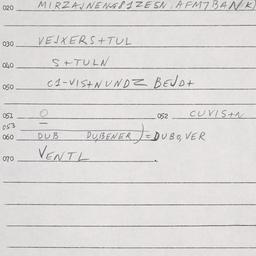 020 MIRZAJNENG81ZESN. AFM7BANK
030 VEJXERS+TUL
040 S+TULN
050 C1-VIS+NUNDZ BEJD+
051 O 052 CUVIS+N
053 —
060 DUB DUBENER )= DUBQVER
070 VENTL .